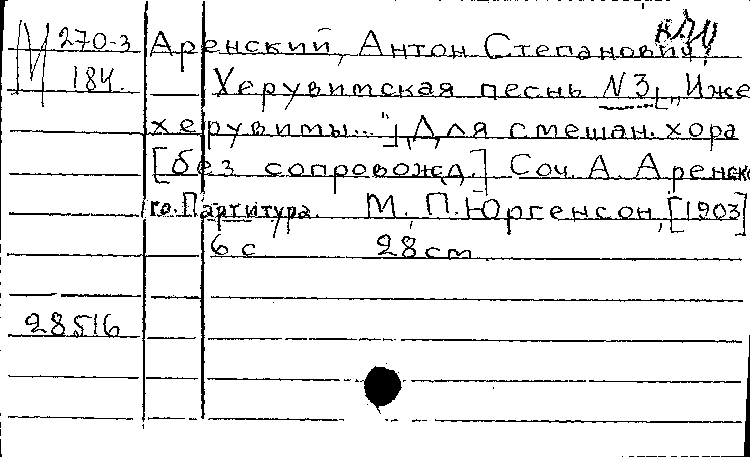 М 270-3 Аренский, Антон Степанович,
184. Херувимская песнь N 3, „Иже
херувимы..." Для смешан. хора
[без сопровожд.] Соч. А. Аренско
го. Партитура. М., П. Юргенсон, [1903]
6 с 28 cm
28516